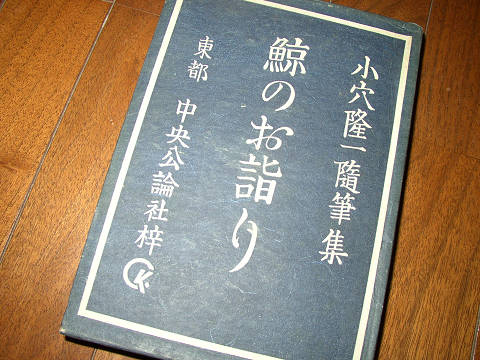 小穴隆一隨筆集
鯨のお詣り
東都 中央公論社梓
CK